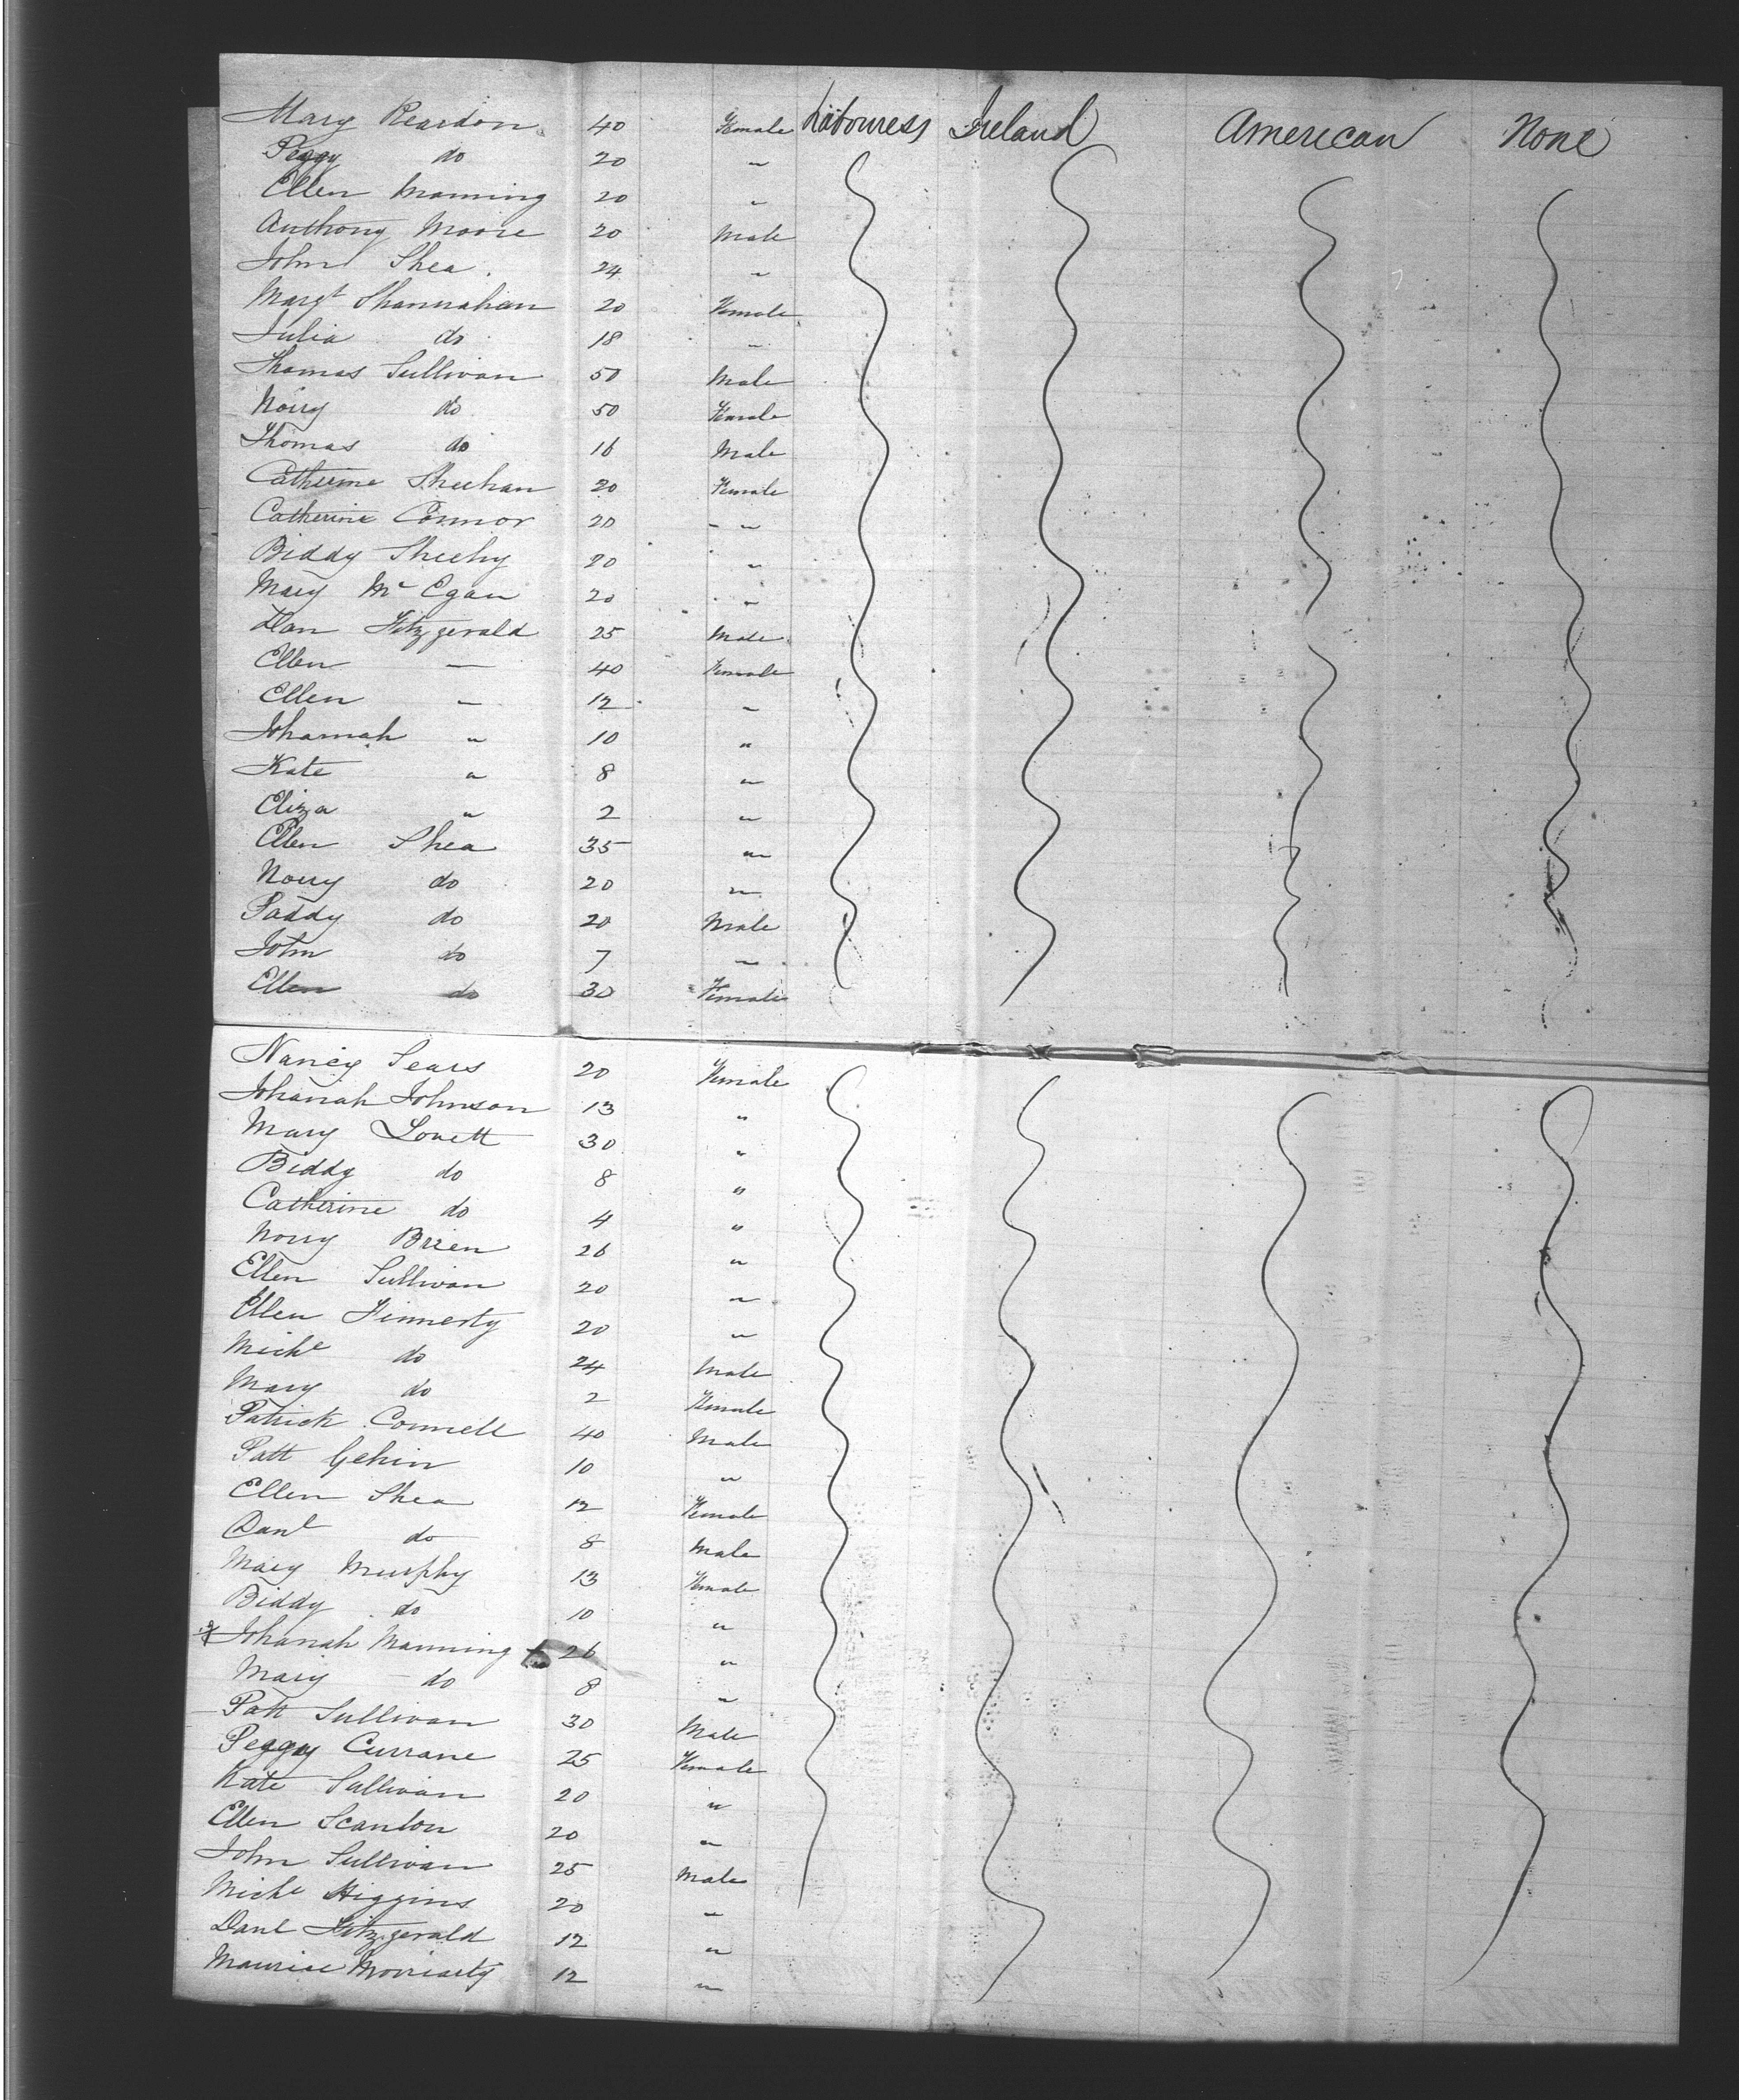 Mary Reardon 40 Female Labouress Ireland American None
Peggy do 20 "
Ellen Manning 20 "
Anthony Moore 20 Male
John Shea 24 "
Margt Shannahan 20 Female
Julia do 18 "
Thomas Sullivan 50 Male
Nory do 50 Female
Thomas do 16 Male
Catherine Sheehan 20 Female
Catherine Connor 20 "
Biddy Sheehy 20 "
Mary Mc Egan 20 "
Dan Fitzgerald 25 Male
Ellen — 40 Female
Ellen — 12 "
Johannah " 10 "
Kate " 8 "
Eliza " 2 "
Ellen Shea 35 "
Nory do 20 "
Paddy do 20 Male
John do 7 "
Ellen do 30 Female
Nancy Sears 20 Female
Johanah Johnson 13 "
Mary Lovett 30 "
Biddy do 8 "
Catherine do 4 "
Nory Brien 26 "
Ellen Sullivan 20 "
Ellen Finnerty 20 "
Michl do 24 Male
Mary do 2 Female
Patrick Connell 40 Male
Patt Gehin 10 "
Ellen Shea 12 Female
Danl do 8 Male
Mary Murphy 13 Female
Biddy do 10 "
Johanah Manning 26 "
Mary do 8 "
Patt Sullivan 30 Male
Peggy Currane 25 Female
Kate Sullivan 20 "
Ellen Scanlon 20 "
John Sullivan 25 Male
Michl Higgins 20 "
Danl Fitzgerald 12 "
Maurice Moriarty 12 "